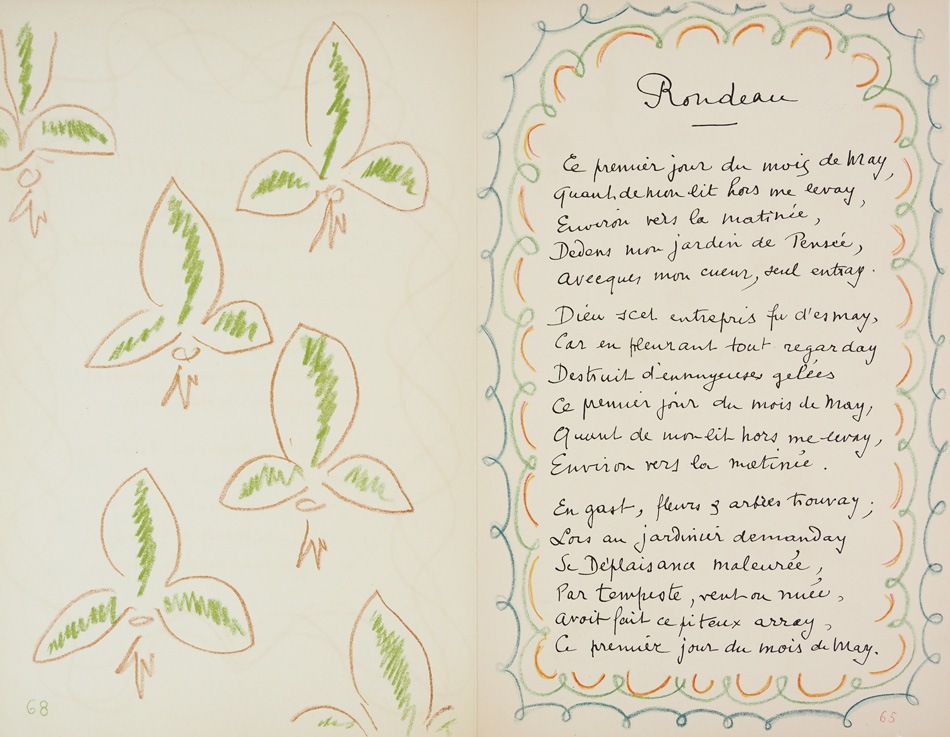 68
Rondeau
Ce premier jour du mois de May,
Quant de mon lit hors me levay,
Environ vers la matinée,
Dedens mon jardin de Pensée,
Avecques mon cueur, seul entray.
Dieu scet entrepris fu d'esmay,
Car en pleurant tout regarday
Destruit d'ennuyeuses gelées
Ce premier jour du mois de May,
Quant de mon lit hors me levay,
Environ vers la matinée.
En gast, fleurs & arbres trouvay;
Lors au jardinier demanday
Se Déplaisance maleurée,
Par tempeste, vent ou nuée,
Avoit fait ce piteux array,
Ce premier jour du mois de May.
65